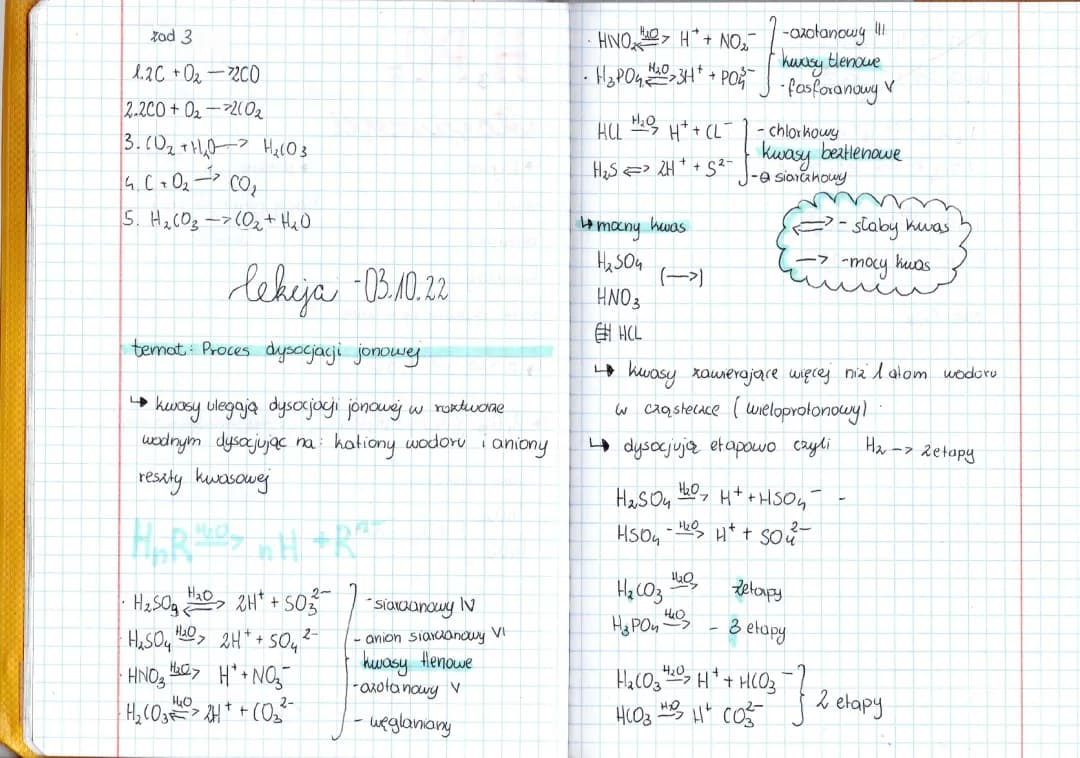 zad 3
1. 2C + O₂ —> 2CO
2. 2CO + O₂ —> 2CO₂
3. CO₂ + H₂O —> H₂CO3
4. C + O₂ —> CO₂
5. H₂CO3 —> CO₂ + H₂O
lekcja - 03.10.22
temat: Proces dysocjacji jonowej
↳ kwasy ulegają dysocjacji jonowej w roztworze
wodnym dysocjując na: kationy wodoru i aniony
reszty kwasowej
HnR H₂O —> nH + Rⁿ⁻
· H₂SO3 <=H₂O=> 2H⁺ + SO3²⁻ - siarczanowy IV
· H₂SO4 —H₂O—> 2H⁺ + SO4²⁻ - anion siarczanowy VI
kwasy tlenowe
· HNO3 —H₂O—> H⁺ + NO3⁻ - azotanowy V
· H₂CO3 <=H₂O=> 2H⁺ + CO3²⁻ - węglaniany
· HNO₂ <=H₂O=> H⁺ + NO₂⁻ - azotanowy III
kwasy tlenowe
· H3PO4 <=H₂O=> 3H⁺ + PO4³⁻ - fosforanowy V
HCL —H₂O—> H⁺ + CL⁻ - chlorkowy
kwasy beztlenowe
H₂S <=> 2H⁺ + S²⁻ - siarczkowy
↳ mocny kwas
<=> - słaby kwas
—> - mocy kwas
H₂SO4
(—>)
HNO3
HCL
↳ kwasy zawierające więcej niż 1 atom wodoru
w cząsteczce (wieloprotonowy)
↳ dysocjują etapowo czyli H₂ —> 2 etapy
H₂SO4 —H₂O—> H⁺ + HSO4⁻ -
HSO4⁻ —H₂O—> H⁺ + SO4²⁻
H₂CO3 —H₂O—> 2 etapy
H3PO4 —H₂O—> - 3 etapy
H₂CO3 —H₂O—> H⁺ + HCO3⁻
2 etapy
HCO3 —H₂O—> H⁺ CO3²⁻